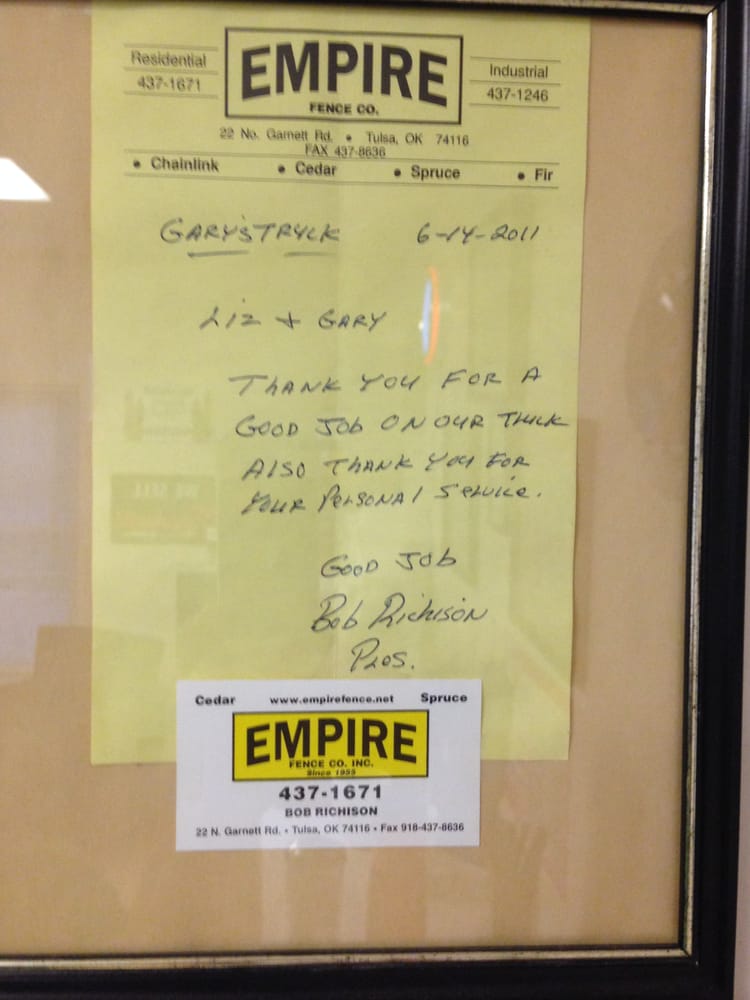 Residential
437-1671
EMPIRE
FENCE CO.
Industrial
437-1246
22 No. Garnett Rd. • Tulsa, OK 74116
FAX 437-8636
• Chainlink • Cedar • Spruce • Fir
GARY'S TRUCK 6-14-2011
Liz + GARY
THANK YOU FOR A
GOOD JOB ON OUR TRUCK
ALSO THANK YOU FOR
YOUR PERSONAL SERVICE.
GOOD JOB
Bob Richison
PRES.
Cedar www.empirefence.net Spruce
EMPIRE
FENCE CO. INC.
Since 1955
437-1671
BOB RICHISON
22 N. Garnett Rd. • Tulsa, OK 74116 • Fax 918-437-8636